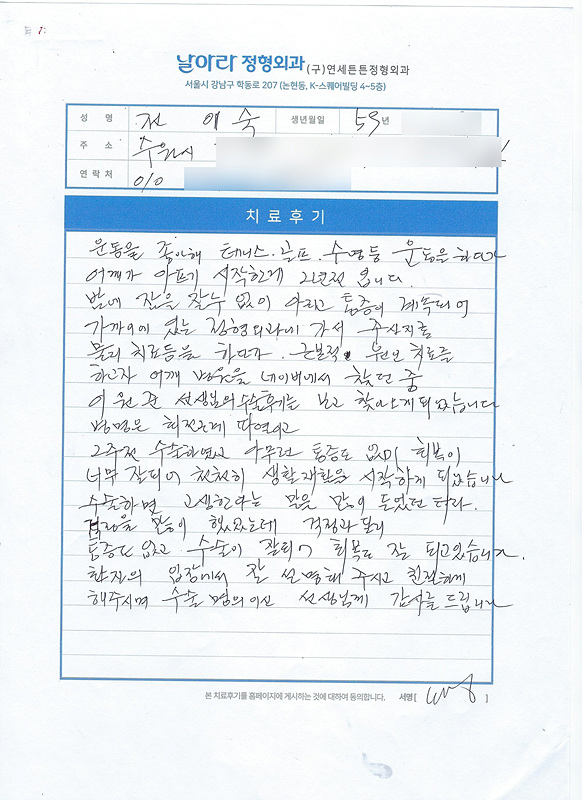 날아라 정형외과 (구)연세튼튼정형외과
서울시 강남구 학동로 207 (논현동, K-스퀘어빌딩 4~5층)
성 명 전 애숙 생년월일 59년
주 소 수원시
연락처 010
치료후기
운동을 좋아해 테니스. 골프. 수영등 운동을 하다가
어깨가 아프기 시작한게 2년전 입니다.
밤에 잠을 잘수 없이 아리고 통증이 계속되어
가까이에 있는 정형외과에 가서 주사치료
물리치료등을 하다가 근본적 원인 치료를
하고자 어깨 병원을 네이버에서 찾던 중
이 원관 선생님의 수술후기를 보고 찾아오게되었습니다
병명은 회전근개 파열이고
2주전 수술하였고 아무런 통증도 없이 회복이
너무 잘되어 천천히 생활재활을 시작하게 되었습니다
수술하면 고생한다는 말을 많이 들었던 터라.
걱정을 많이 했었는데 걱정과 달리
통증도 없고 수술이 잘되어 회복도 잘 되고있습니다.
환자의 입장에서 잘 설명해 주시고 친절하게
해주시며 수술 명의이신 선생님께 감사를 드립니다
본 치료후기를 홈페이지에 게시하는 것에 대하여 동의합니다. 서명[ ]